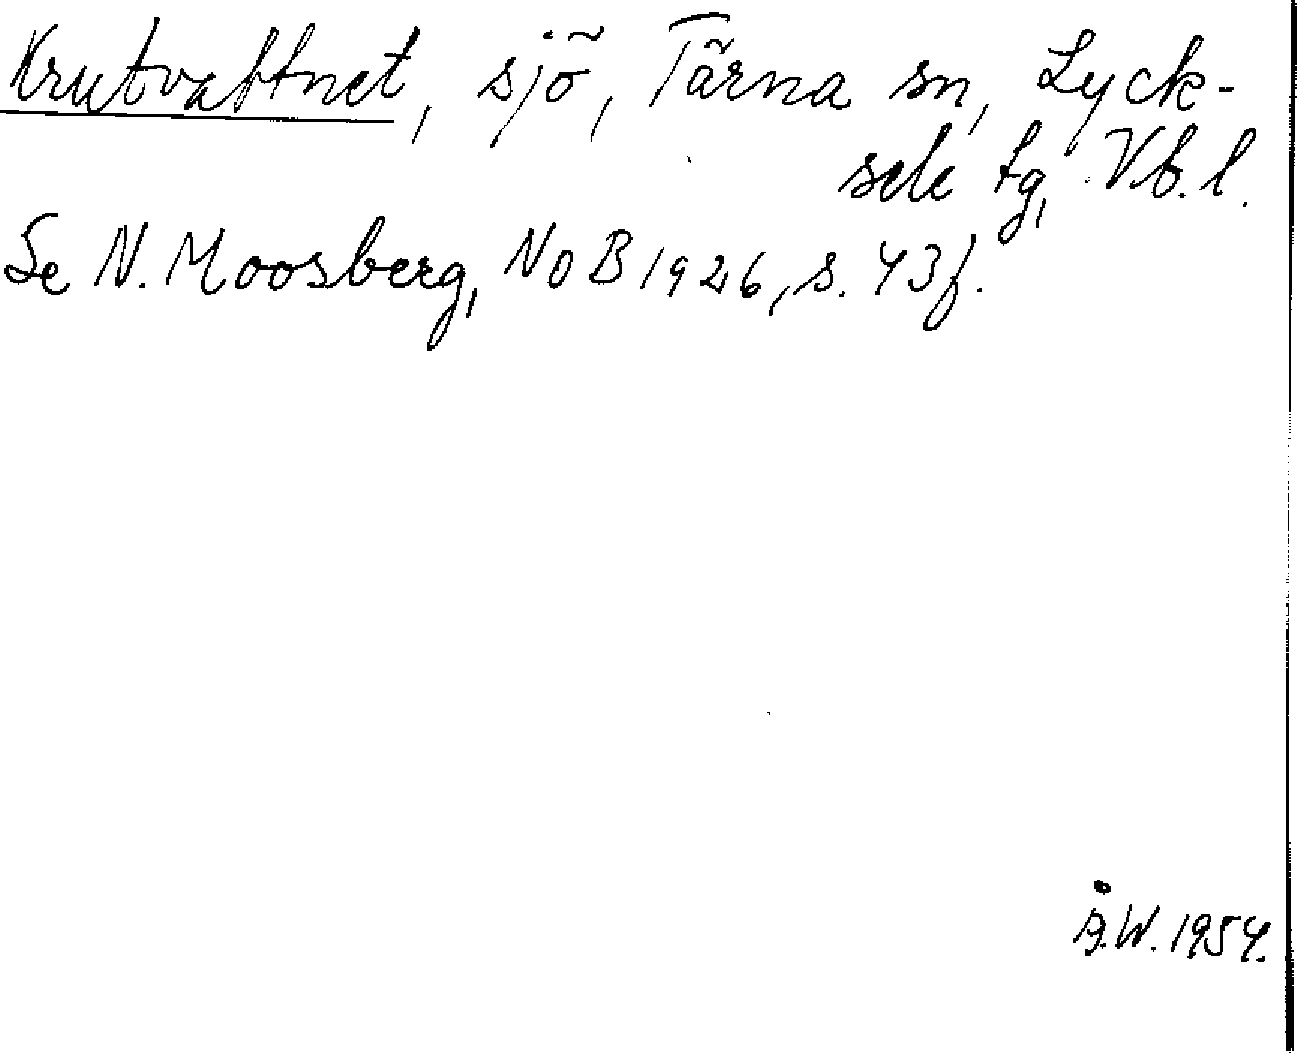 Krutvattnet, sjö, Tärna sn, Lyck-
sele lg, Vb. l.
Se N. Moosberg, NoB 1926, s. 43 f.
Å.W. 1954.